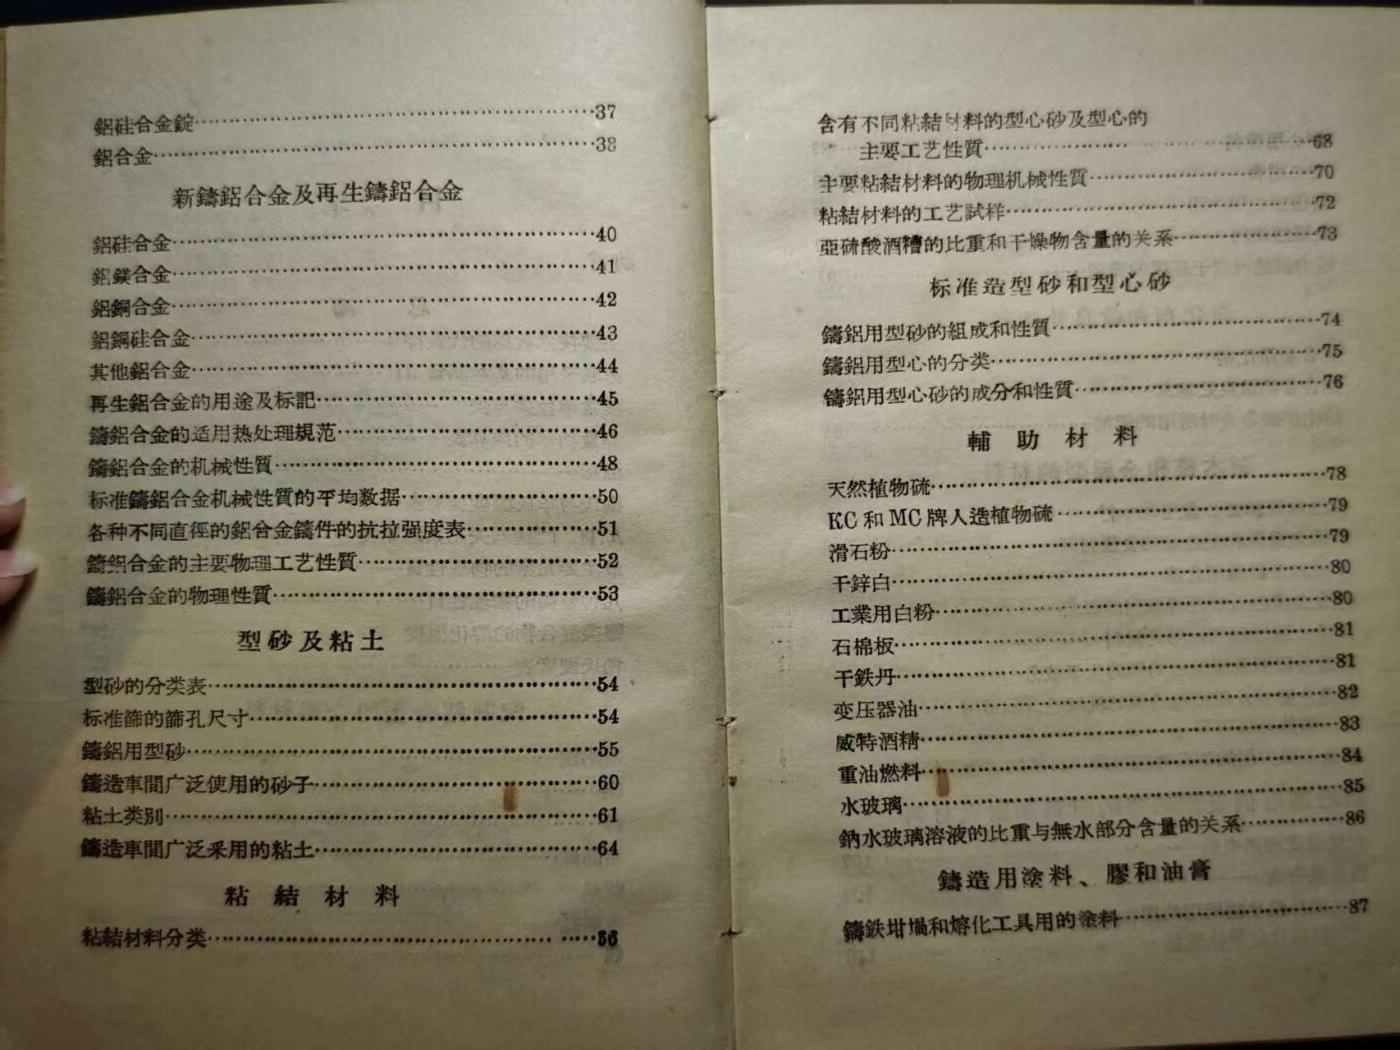 鋁硅合金錠……37
鋁合金……38
新鑄鋁合金及再生鑄鋁合金
鋁硅合金……40
鋁鎂合金……41
鋁銅合金……42
鋁銅硅合金……43
其他鋁合金……44
再生鋁合金的用途及标記……45
鑄鋁合金的适用热处理規范……46
鑄鋁合金的机械性質……48
标准鑄鋁合金机械性質的平均数据……50
各种不同直徑的鋁合金鑄件的抗拉强度表……51
鑄鋁合金的主要物理工艺性質……52
鑄鋁合金的物理性質……53
型砂及粘土
型砂的分类表……54
标准篩的篩孔尺寸……54
鑄鋁用型砂……55
鑄造車間广泛使用的砂子……60
粘土类別……61
鑄造車間广泛采用的粘土……64
粘結材料
粘結材料分类……66
含有不同粘結材料的型心砂及型心的
主要工艺性質……68
主要粘結材料的物理机械性質……70
粘結材料的工艺試样……72
亞硫酸酒糟的比重和干燥物含量的关系……73
标准造型砂和型心砂
鑄鋁用型砂的組成和性質……74
鑄鋁用型心的分类……75
鑄鋁用型心砂的成分和性質……76
輔助材料
天然植物硫……78
КС和МС牌人造植物硫……79
滑石粉……79
干鋅白……80
工業用白粉……80
石棉板……81
干鉄丹……81
变压器油……82
威特酒精……83
重油燃料……84
水玻璃……85
鈉水玻璃溶液的比重与無水部分含量的关系……86
鑄造用塗料、膠和油膏
鑄鉄坩堝和熔化工具用的塗料……87